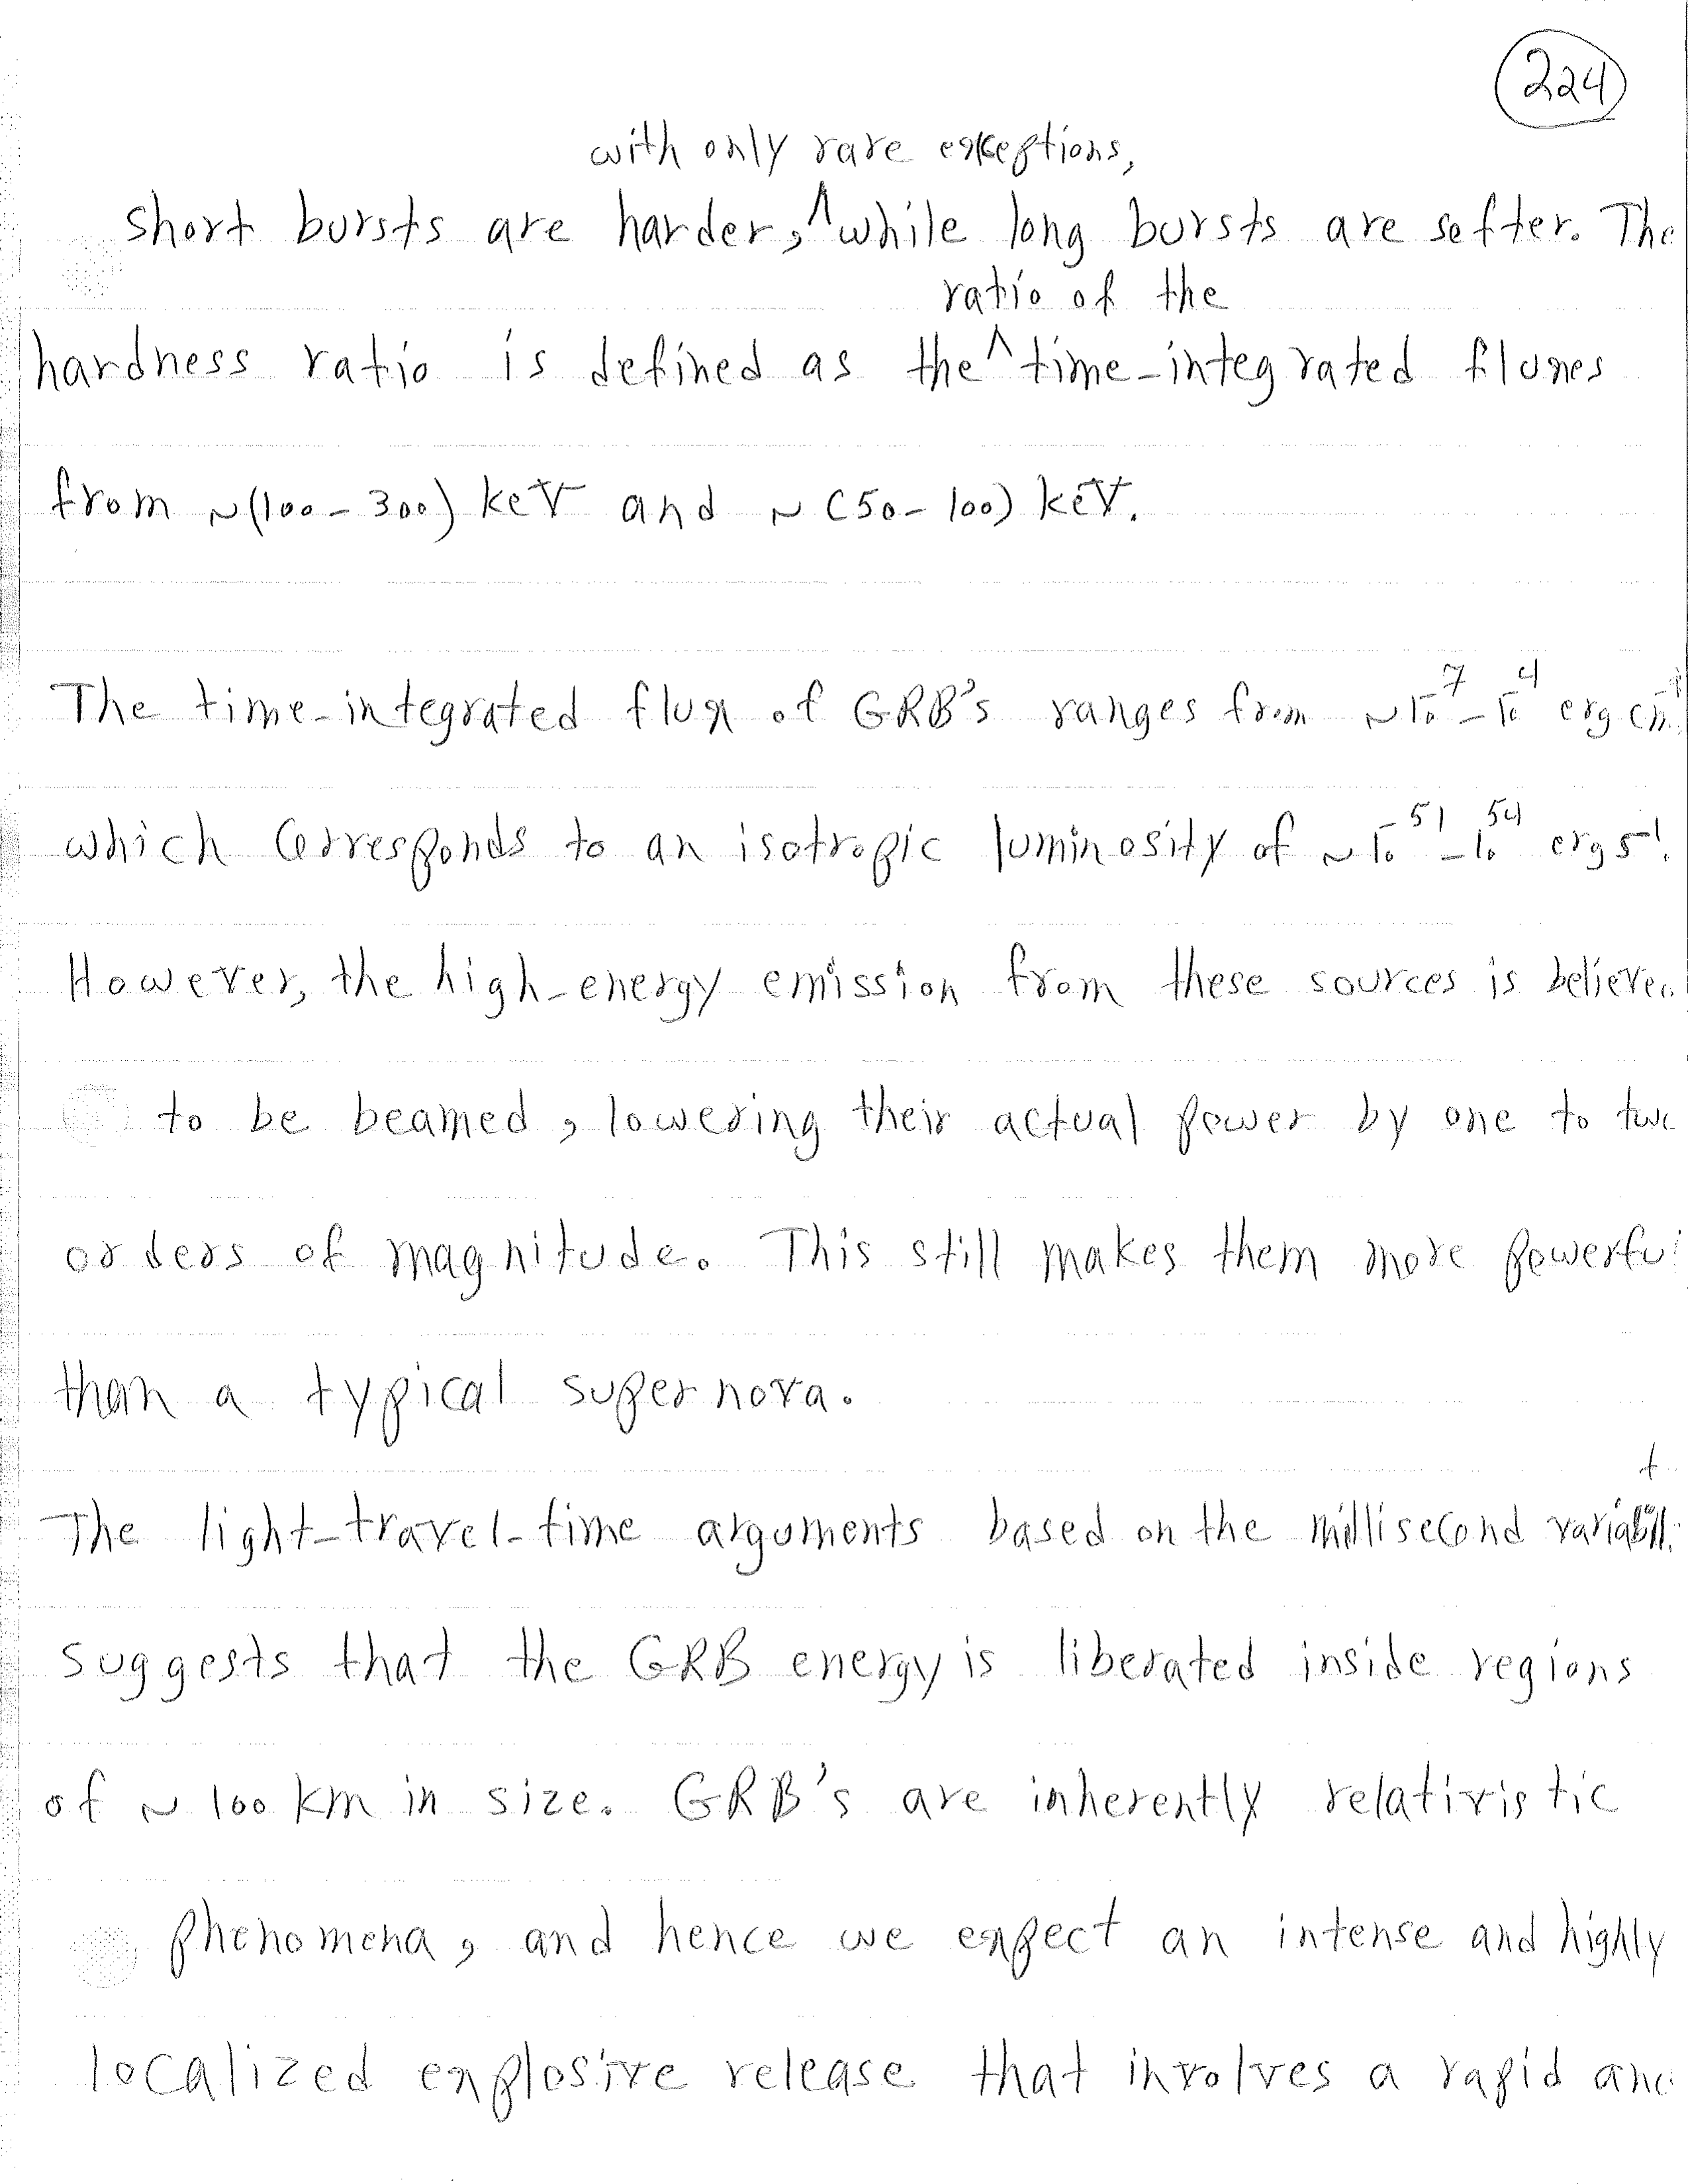 224
with only rare exceptions,
short bursts are harder, ^ while long bursts are softer. The
ratio of the
hardness ratio is defined as the ^ time-integrated fluxes
from ~(100-300) keV and ~(50-100) keV.
The time-integrated flux of GRB's ranges from ~10^-7 - 10^-4 erg cm
which corresponds to an isotropic luminosity of ~10^51 - 10^54 erg s^-1.
However, the high-energy emission from these sources is believed
to be beamed, lowering their actual power by one to two
orders of magnitude. This still makes them more powerful
than a typical supernova.
The light-travel-time arguments based on the millisecond variabilit
suggests that the GRB energy is liberated inside regions
of ~100 km in size. GRB's are inherently relativistic
phenomena, and hence we expect an intense and highly
localized explosive release that involves a rapid and